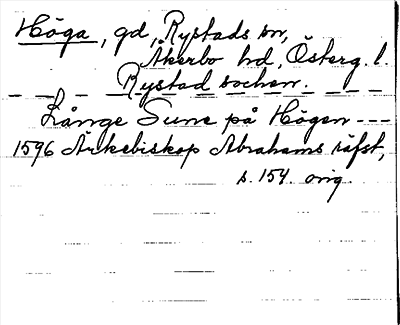 Höga, gd, Rystads sn,
Åkerbo hd, Österg. l.
– – – Rystad sochen. – – –
Långe Sune på Högen – – –
1596 Ärkebiskop Abrahams räfst,
s. 154. orig.